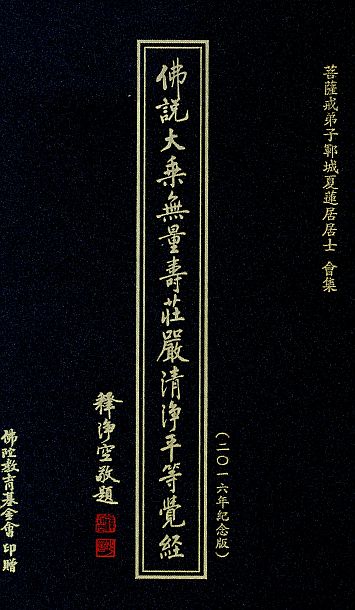 菩薩戒弟子鄆城夏蓮居居士 會集
(二〇一六年紀念版)
佛說大乘無量壽莊嚴清淨平等覺經
釋淨空敬題
佛陀教育基金會 印贈